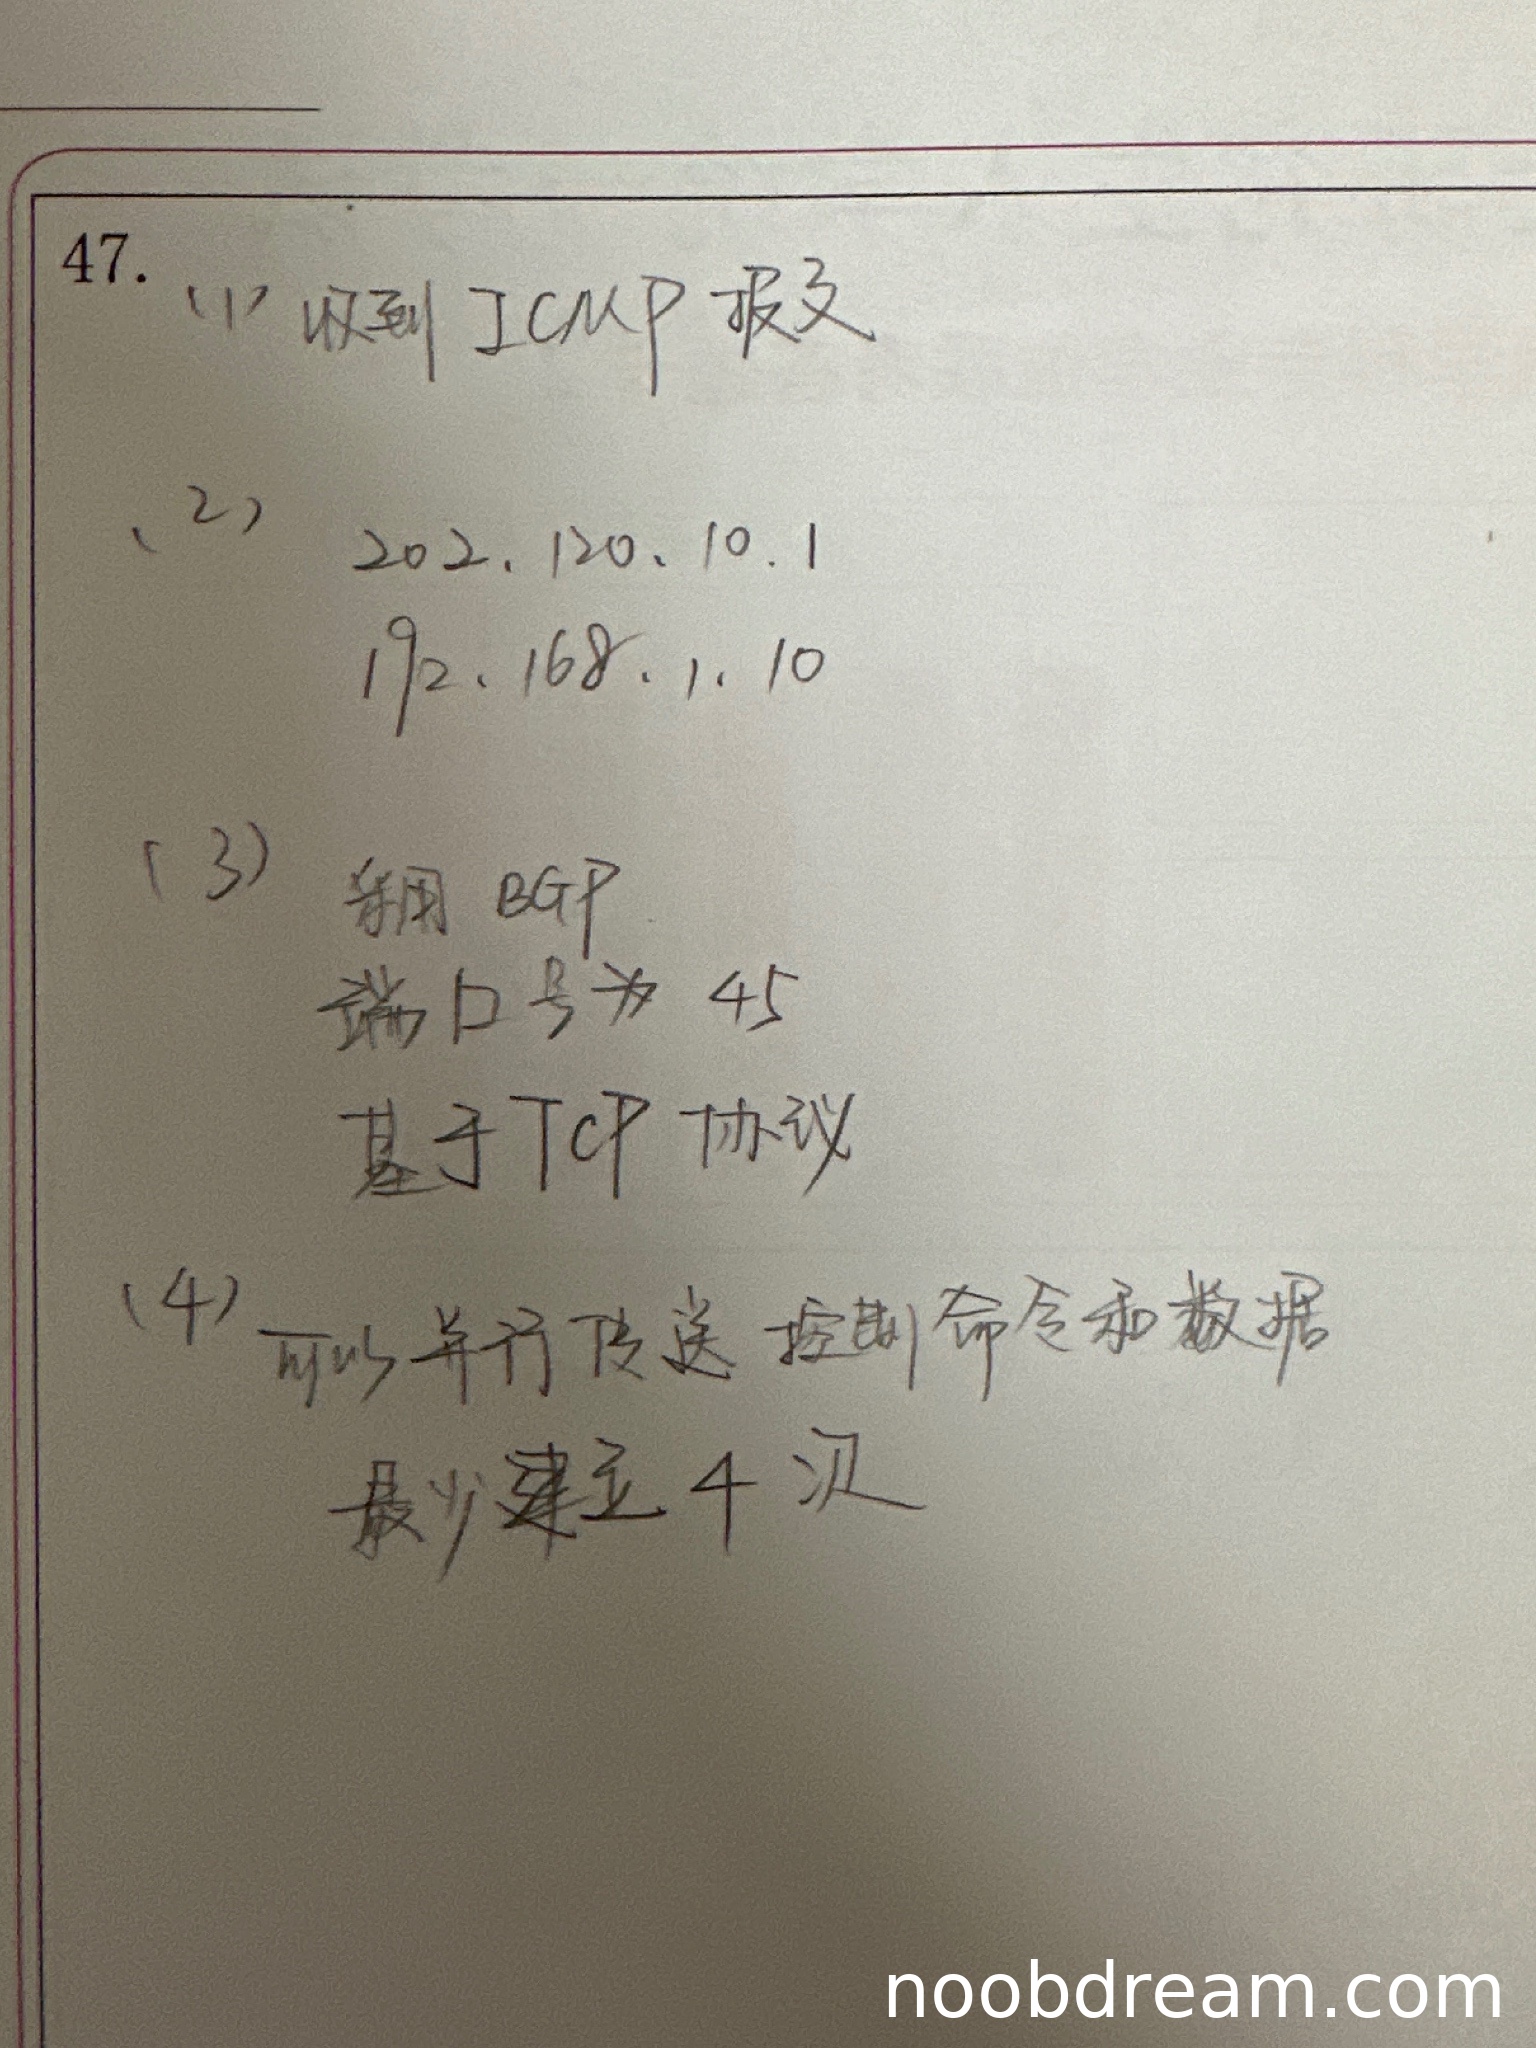 47.
(1) 收到 ICMP 报文
(2) 202.120.10.1
192.168.1.10
(3) 采用 BGP
端口号为 45
基于 TCP 协议
(4) 可以并行传送 控制命令和数据
最少建立 4 次
noobdream.com